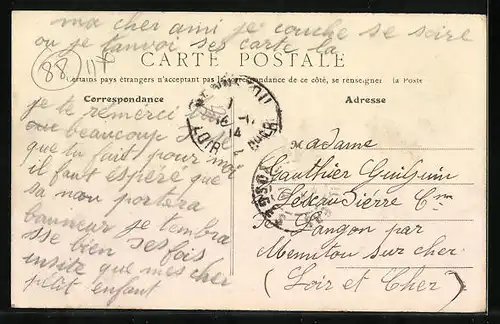 ma cher ami je couche se soire
ou je tanvoi ses carte la
88
117
CARTE POSTALE
Certains pays étrangers n'acceptant pas la correspondance de ce côté, se renseigner à la Poste
Correspondance
Adresse
je te remerci
beaucoup de se
que tu fait pour moi
il faut espere que
sa nou portera
bauneur je tembra
sse bien ses fois
insite que mes cher
petit enfant
LOIR
CHER
14
madame
Gauthier
Lescaudière Cne
Langon par
Mennetou sur cher
(Loir et Cher)